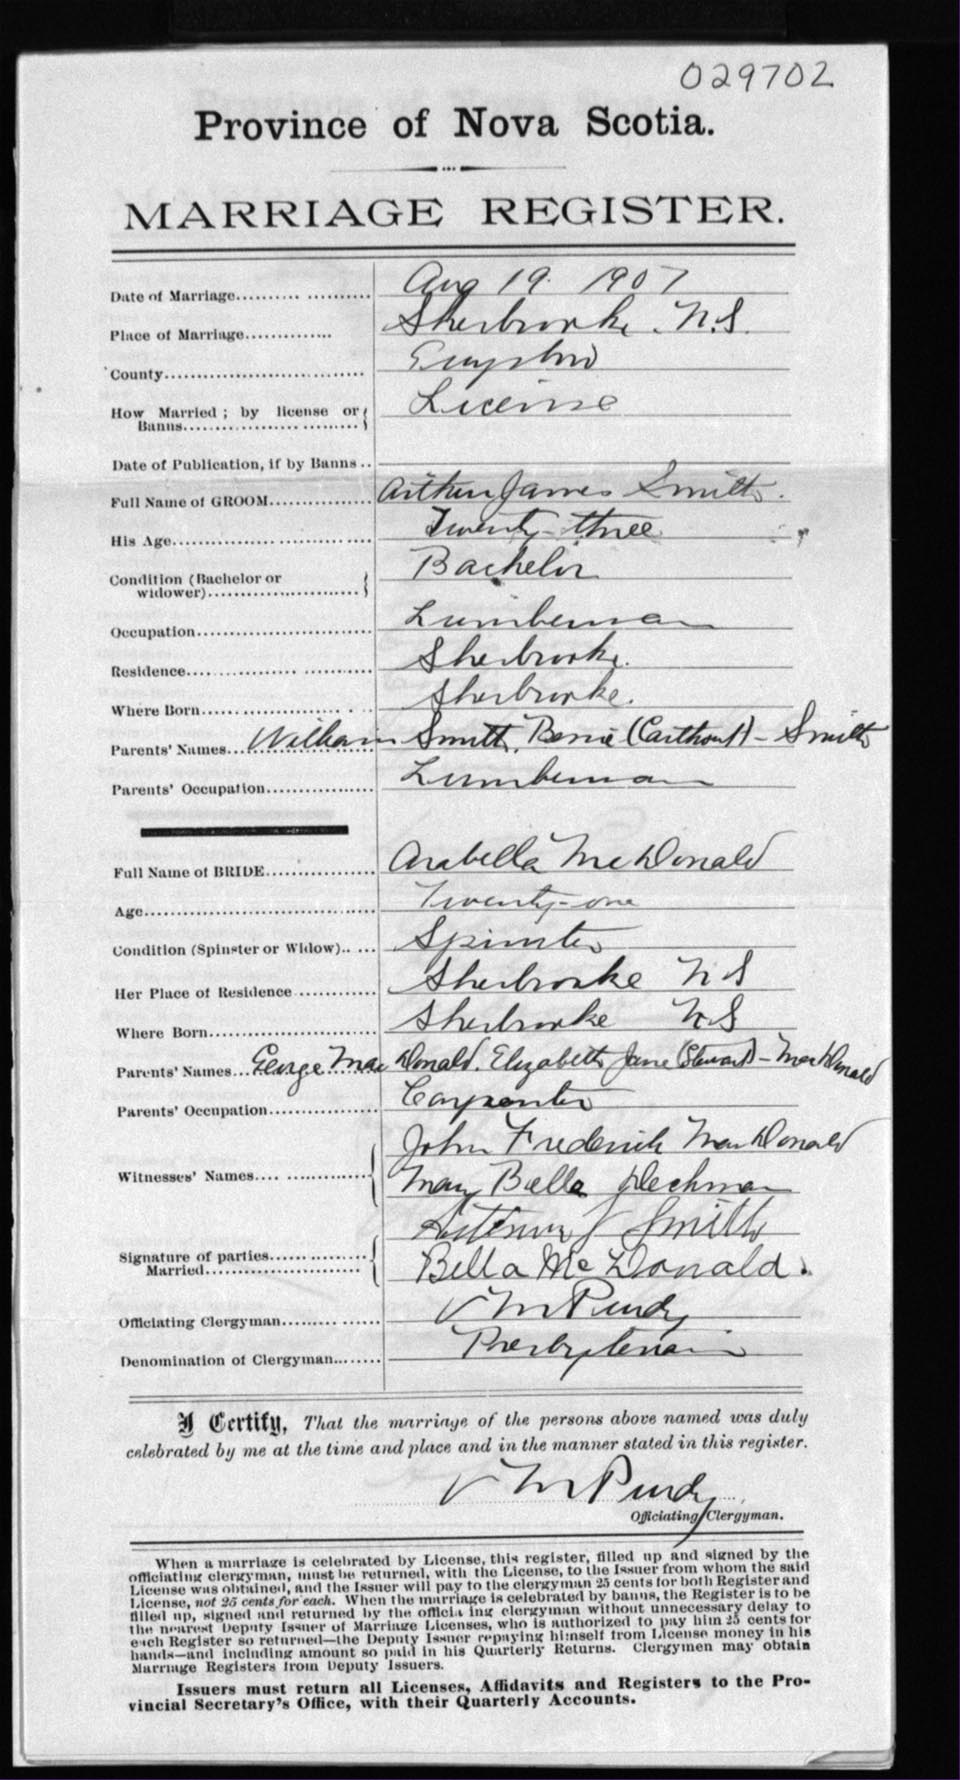 029702
Province of Nova Scotia.
MARRIAGE REGISTER.
Date of Marriage.......... Aug 19. 1907
Place of Marriage............. Sherbrooke. N.S.
County............................. Guysboro
How Married ; by license or License
Banns.............................
Date of Publication, if by Banns ..
Full Name of GROOM............... Arthur James Smith.
His Age............................. Twenty-three
Condition (Bachelor or Bachelor
widower)...........................
Occupation......................... Lumberman
Residence........................... Sherbrooke.
Where Born......................... Sherbrooke.
Parents' Names... William Smith, - Smith
Parents' Occupation................. Lumberman
Full Name of BRIDE................. Arabella McDonald
Age.................................. Twenty-one
Condition (Spinster or Widow)..... Spinster
Her Place of Residence ............ Sherbrooke N S
Where Born......................... Sherbrooke N.S
Parents' Names... George MacDonald. Elizabeth Jane (Stewart) - MacDonald
Parents' Occupation................ Carpenter
John Frederick MacDonald
Witnesses' Names.... .............. Mary Bella Dechman
Arthur J Smith
Signature of parties...............
Married....................... Bella McDonald.
Officiating Clergyman......... ...... J M Purdy
Denomination of Clergyman........ Presbyterian
I Certify, That the marriage of the persons above named was duly
celebrated by me at the time and place and in the manner stated in this register.
J M Purdy
Officiating Clergyman.
When a marriage is celebrated by License, this register, filled up and signed by the
officiating clergyman, must be returned, with the License, to the Issuer from whom the said
License was obtained, and the Issuer will pay to the clergyman 25 cents for both Register and
License, not 25 cents for each. When the marriage is celebrated by banns, the Register is to be
filled up, signed and returned by the officiating clergyman without unnecessary delay to
the nearest Deputy Issuer of Marriage Licenses, who is authorized to pay him 25 cents for
each Register so returned—the Deputy Issuer repaying himself from License money in his
hands—and including amount so paid in his Quarterly Returns. Clergymen may obtain
Marriage Registers from Deputy Issuers.
Issuers must return all Licenses, Affidavits and Registers to the Pro-
vincial Secretary's Office, with their Quarterly Accounts.